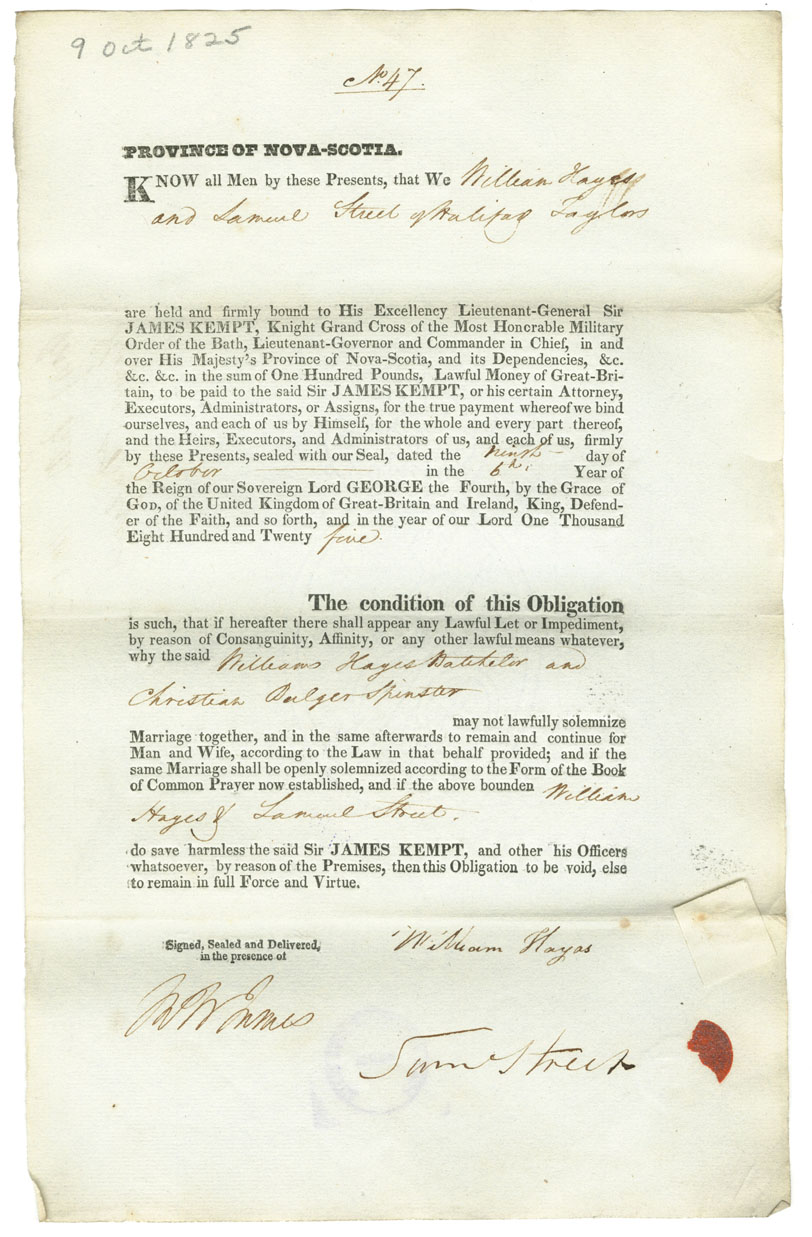 9 Oct 1825
No. 47.
PROVINCE OF NOVA-SCOTIA.
KNOW all Men by these Presents, that We William Hayes
and Samuel Street of Halifax Taylors
are held and firmly bound to His Excellency Lieutenant-General Sir
JAMES KEMPT, Knight Grand Cross of the Most Honorable Military
Order of the Bath, Lieutenant-Governor and Commander in Chief, in and
over His Majesty's Province of Nova-Scotia, and its Dependencies, &c.
&c. &c. in the sum of One Hundred Pounds, Lawful Money of Great-Bri-
tain, to be paid to the said Sir JAMES KEMPT, or his certain Attorney,
Executors, Administrators, or Assigns, for the true payment whereof we bind
ourselves, and each of us by Himself, for the whole and every part thereof,
and the Heirs, Executors, and Administrators of us, and each of us, firmly
by these Presents, sealed with our Seal, dated the ninth day of
October in the 6th. Year of
the Reign of our Sovereign Lord GEORGE the Fourth, by the Grace of
GOD, of the United Kingdom of Great-Britain and Ireland, King, Defend-
er of the Faith, and so forth, and in the year of our Lord One Thousand
Eight Hundred and Twenty five.
The condition of this Obligation
is such, that if hereafter there shall appear any Lawful Let or Impediment,
by reason of Consanguinity, Affinity, or any other lawful means whatever,
why the said Williams Hayes Batchelor and
Christian Bulger Spinster
may not lawfully solemnize
Marriage together, and in the same afterwards to remain and continue for
Man and Wife, according to the Law in that behalf provided; and if the
same Marriage shall be openly solemnized according to the Form of the Book
of Common Prayer now established, and if the above bounden William
Hayes & Samuel Street.
do save harmless the said Sir JAMES KEMPT, and other his Officers
whatsoever, by reason of the Premises, then this Obligation to be void, else
to remain in full Force and Virtue.
Signed, Sealed and Delivered,
in the presence of
William Hayes
Saml Street